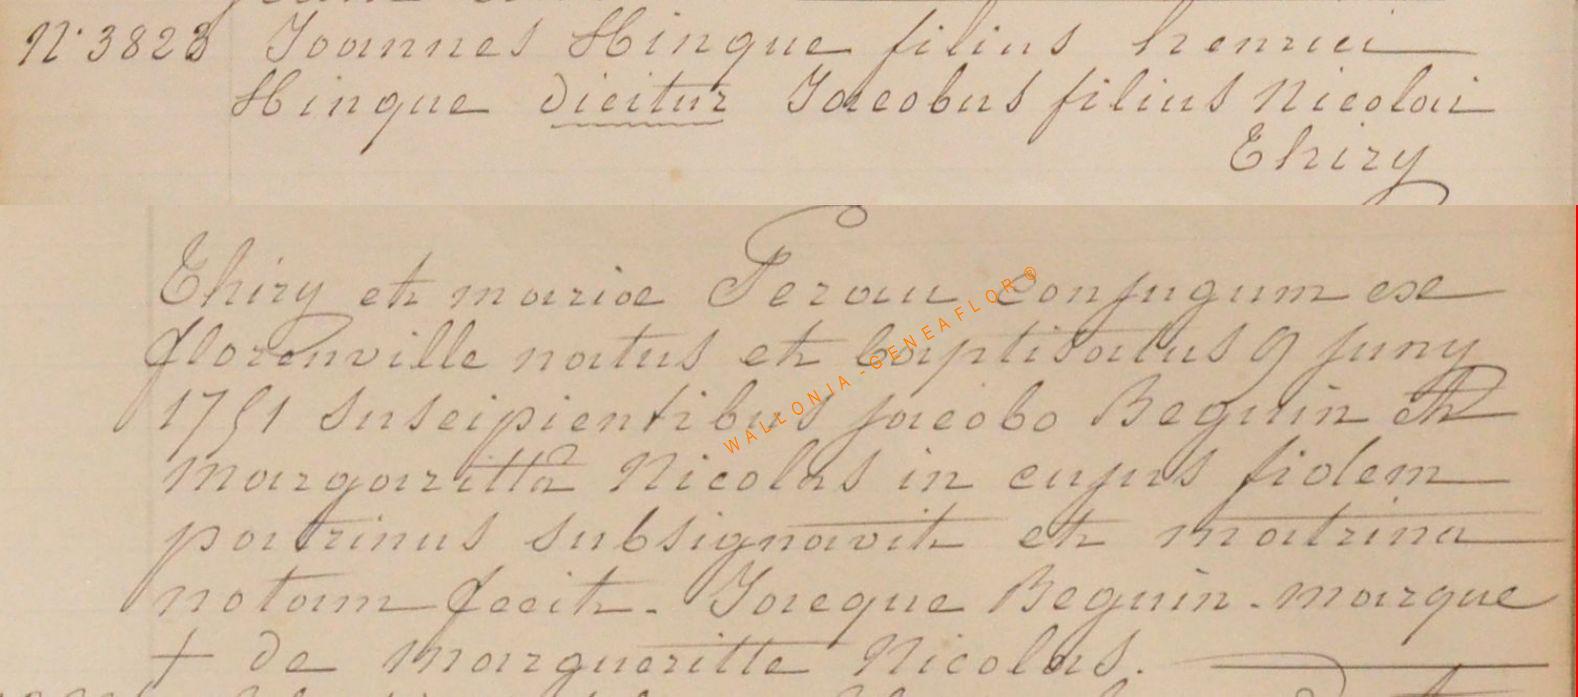 N° 3823 Joannes Hinque filius henrici
Hinque dicitur Jacobus filius Nicolai
Thiry
Thiry et mariae Perau conjugum ex
florenville natus et baptisatus 9 juny
1751 suscipientibus jacobo Beguin et
margaritta Nicolas in cujus fidem
patrinus subsignavit et matrina
notam fecit. Jacque Beguin. marque
+ de margueritte Nicolas.
WALLONIA-GENEAFLOR®